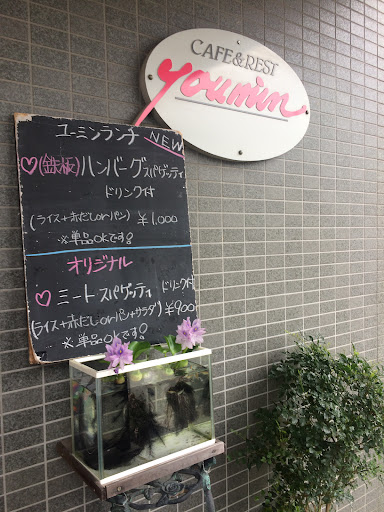 CAFE&REST
youmin
ユーミンランチ NEW
♡(鉄板)ハンバーグスパゲッティ
ドリンク付
(ライス+赤だしorパン) ¥1.000
※単品OKです!
オリジナル
♡ミートスパゲッティ ドリンク付
(ライス+赤だしorパン+サラダ) ¥900
※単品OKです!